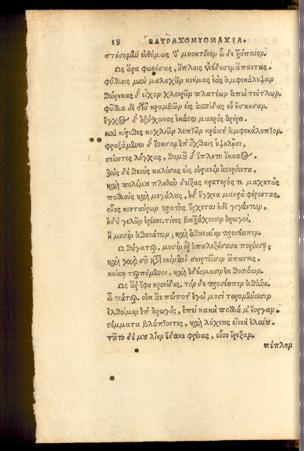 18 ΒΑΤΡΑΧΟΜΥΟΜΑΧΙΑ.
στήσομεν εὐθύμως τὸ μυοκτόνον ὧδε τρόπαιον.
Ὣς ἄρα φωνήσας, ὅπλοις ἐνέδυσεν ἅπαντας.
φύλλοις μὲν μαλαχῶν κνήμας ἑὰς ἀμφεκάλυψαν
θώρηκας δ' εἶχον χλοερῶν πλατέων ἀπὸ τεύτλων,
φύλλα δὲ τῶν κραμβῶν εἰς ἀσπίδας εὖ ἤσκησαν.
ἔγχος δ' ὀξύχοινος ἑκάστῳ μακρὸς ἀρήρει.
καὶ κόρυθες κοχλιῶν λεπτῶν κράατ' ἀμφεκάλυπτον.
φραξάμενοι δ' ἔστησαν ἐπ' ὄχθαις ὑψηλῇσι,
σείοντες λόγχας, θυμοῦ δ' ἔπλητο ἕκαστος.
Ζεὺς δὲ θεοὺς καλέσας εἰς οὐρανὸν ἀστερόεντα,
καὶ πολέμου πληθὺν δείξας κρατερούς τε μαχητὰς
πολλοὺς καὶ μεγάλους, ἠδ' ἔγχεα μακρὰ φέροντας,
οἷος κενταύρων στρατὸς ἔρχεται ἠδὲ γιγάντων,
ἡδὺ γελῶν ἐρέεινε, τίνες βατράχοισιν ἀρωγοί,
ἢ μυσὶν ἀθανάτων; καὶ ἀθηναίην προσέειπεν.
Ὦ θύγατερ, μυσὶν ἦ ἐπαλεξήσουσα πορεύσῃ;
καὶ γὰρ σοῦ κατὰ νηὸν ἀεὶ σκιρτῶσιν ἅπαντες,
κνίσῃ τερπόμενοι, καὶ ἐδέσμασιν ἐκ θυσιάων.
Ὣς ἄρ' ἔφη κρονίδης, τὸν δὲ προσέειπεν ἀθήνη.
ὦ πάτερ, οὐκ ἄν πώποτ' ἐγὼ μυσὶ τειρομένοισιν
ἐλθοίμην ἐπαρωγός, ἐπεὶ κακὰ πολλά μ' ἔοργαν.
στέμματα βλάπτοντες, καὶ λύχνους εἵνεκ' ἐλαίου.
τοῦτο δέ μου λίην ἔδακε φρένας, οἷον ἔρεξαν.
πέπλον